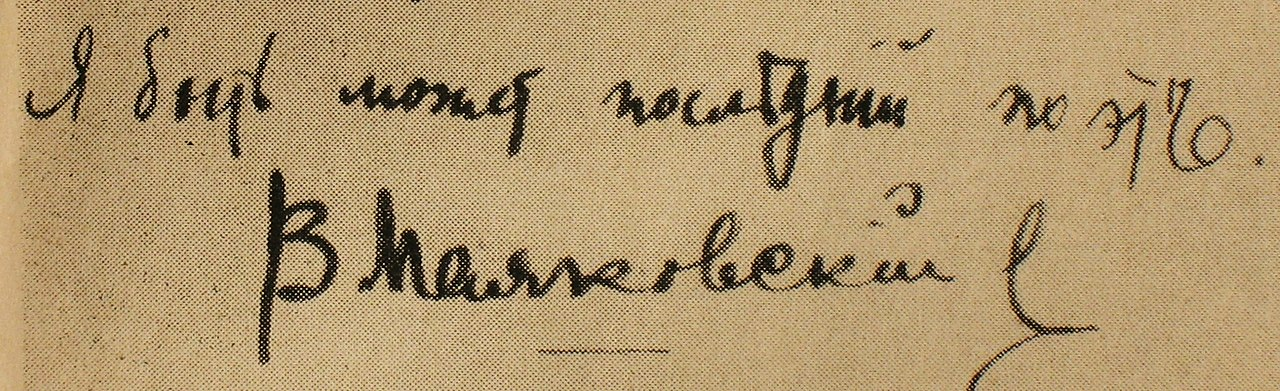 Я быть можетъ послѣдній поэтъ.
В Маяковскій